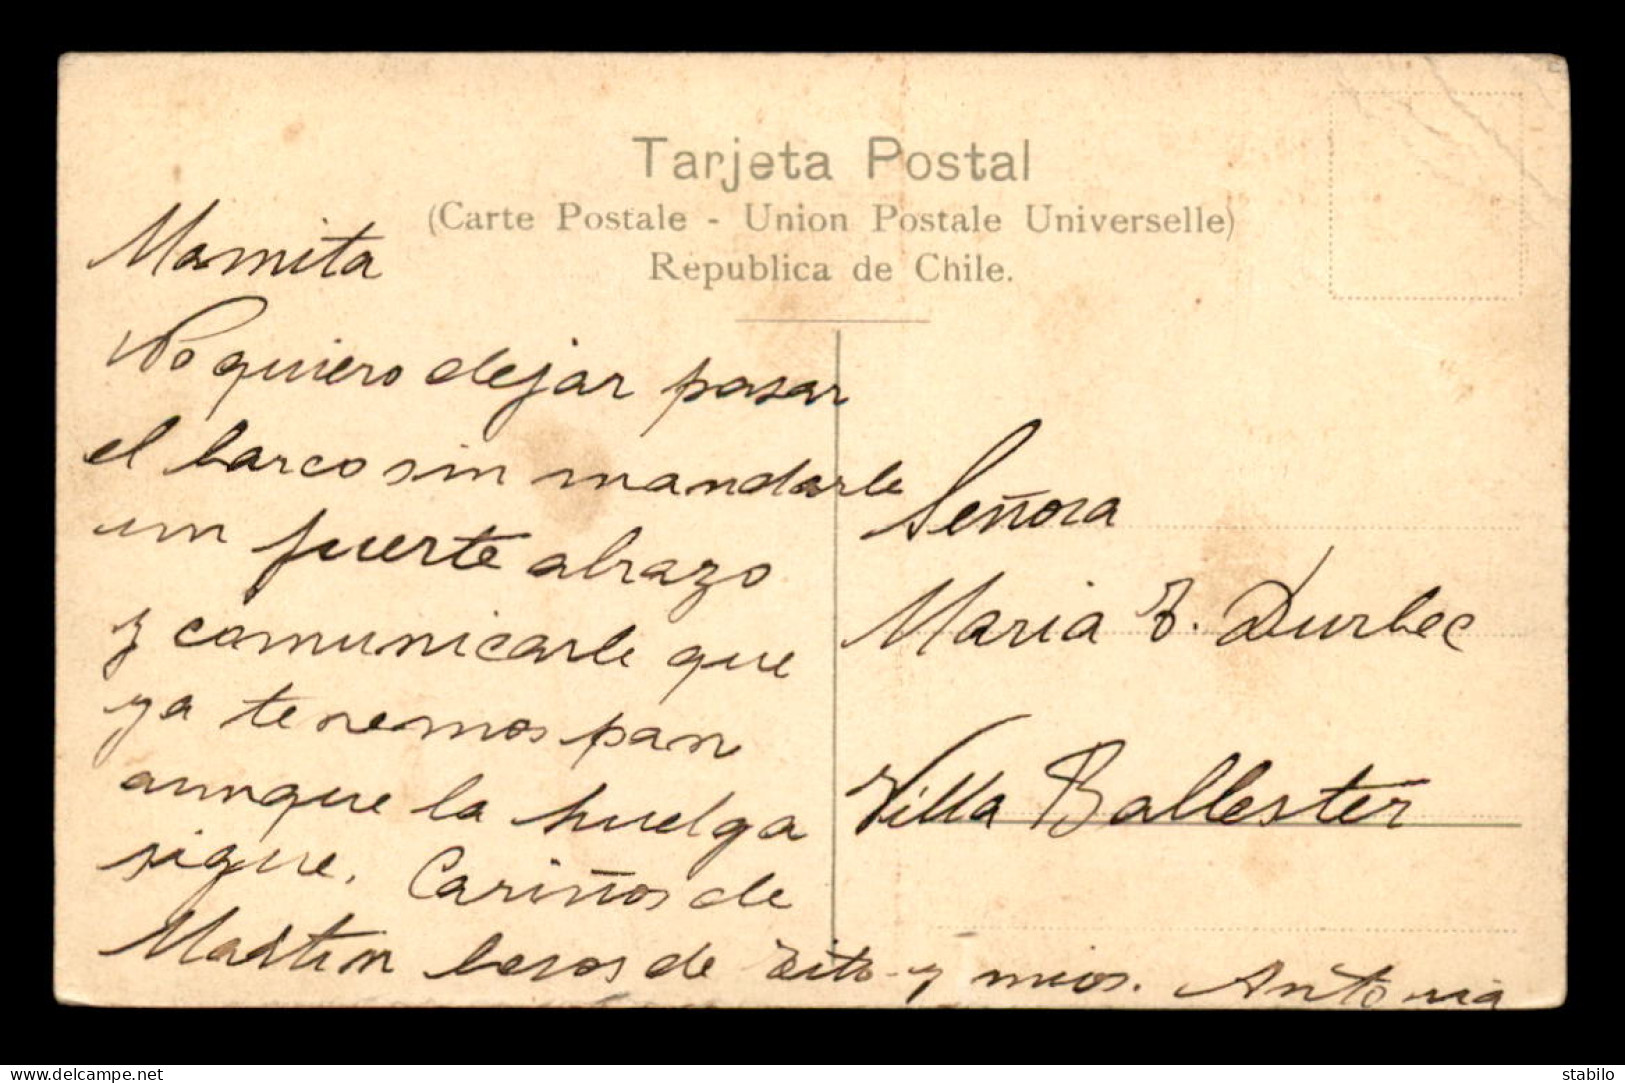 Tarjeta Postal
(Carte Postale - Union Postale Universelle)
Republica de Chile.
Mamita
No quiero dejar pasar
el barco sin mandarle
un fuerte abrazo
y comunicarle que
ya tenemos pan
aunque la huelga
sigue. Cariños de
Martin besos de Tito y mios. Antonia
Señora
Maria T. Durbec
Villa Ballester
www.delcampe.net
stabilo